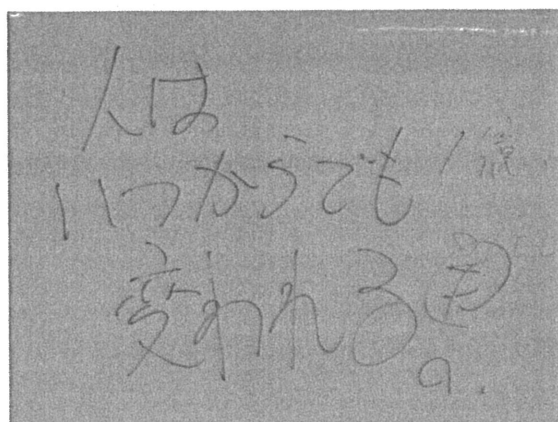 人は
いつからでも
変われる。